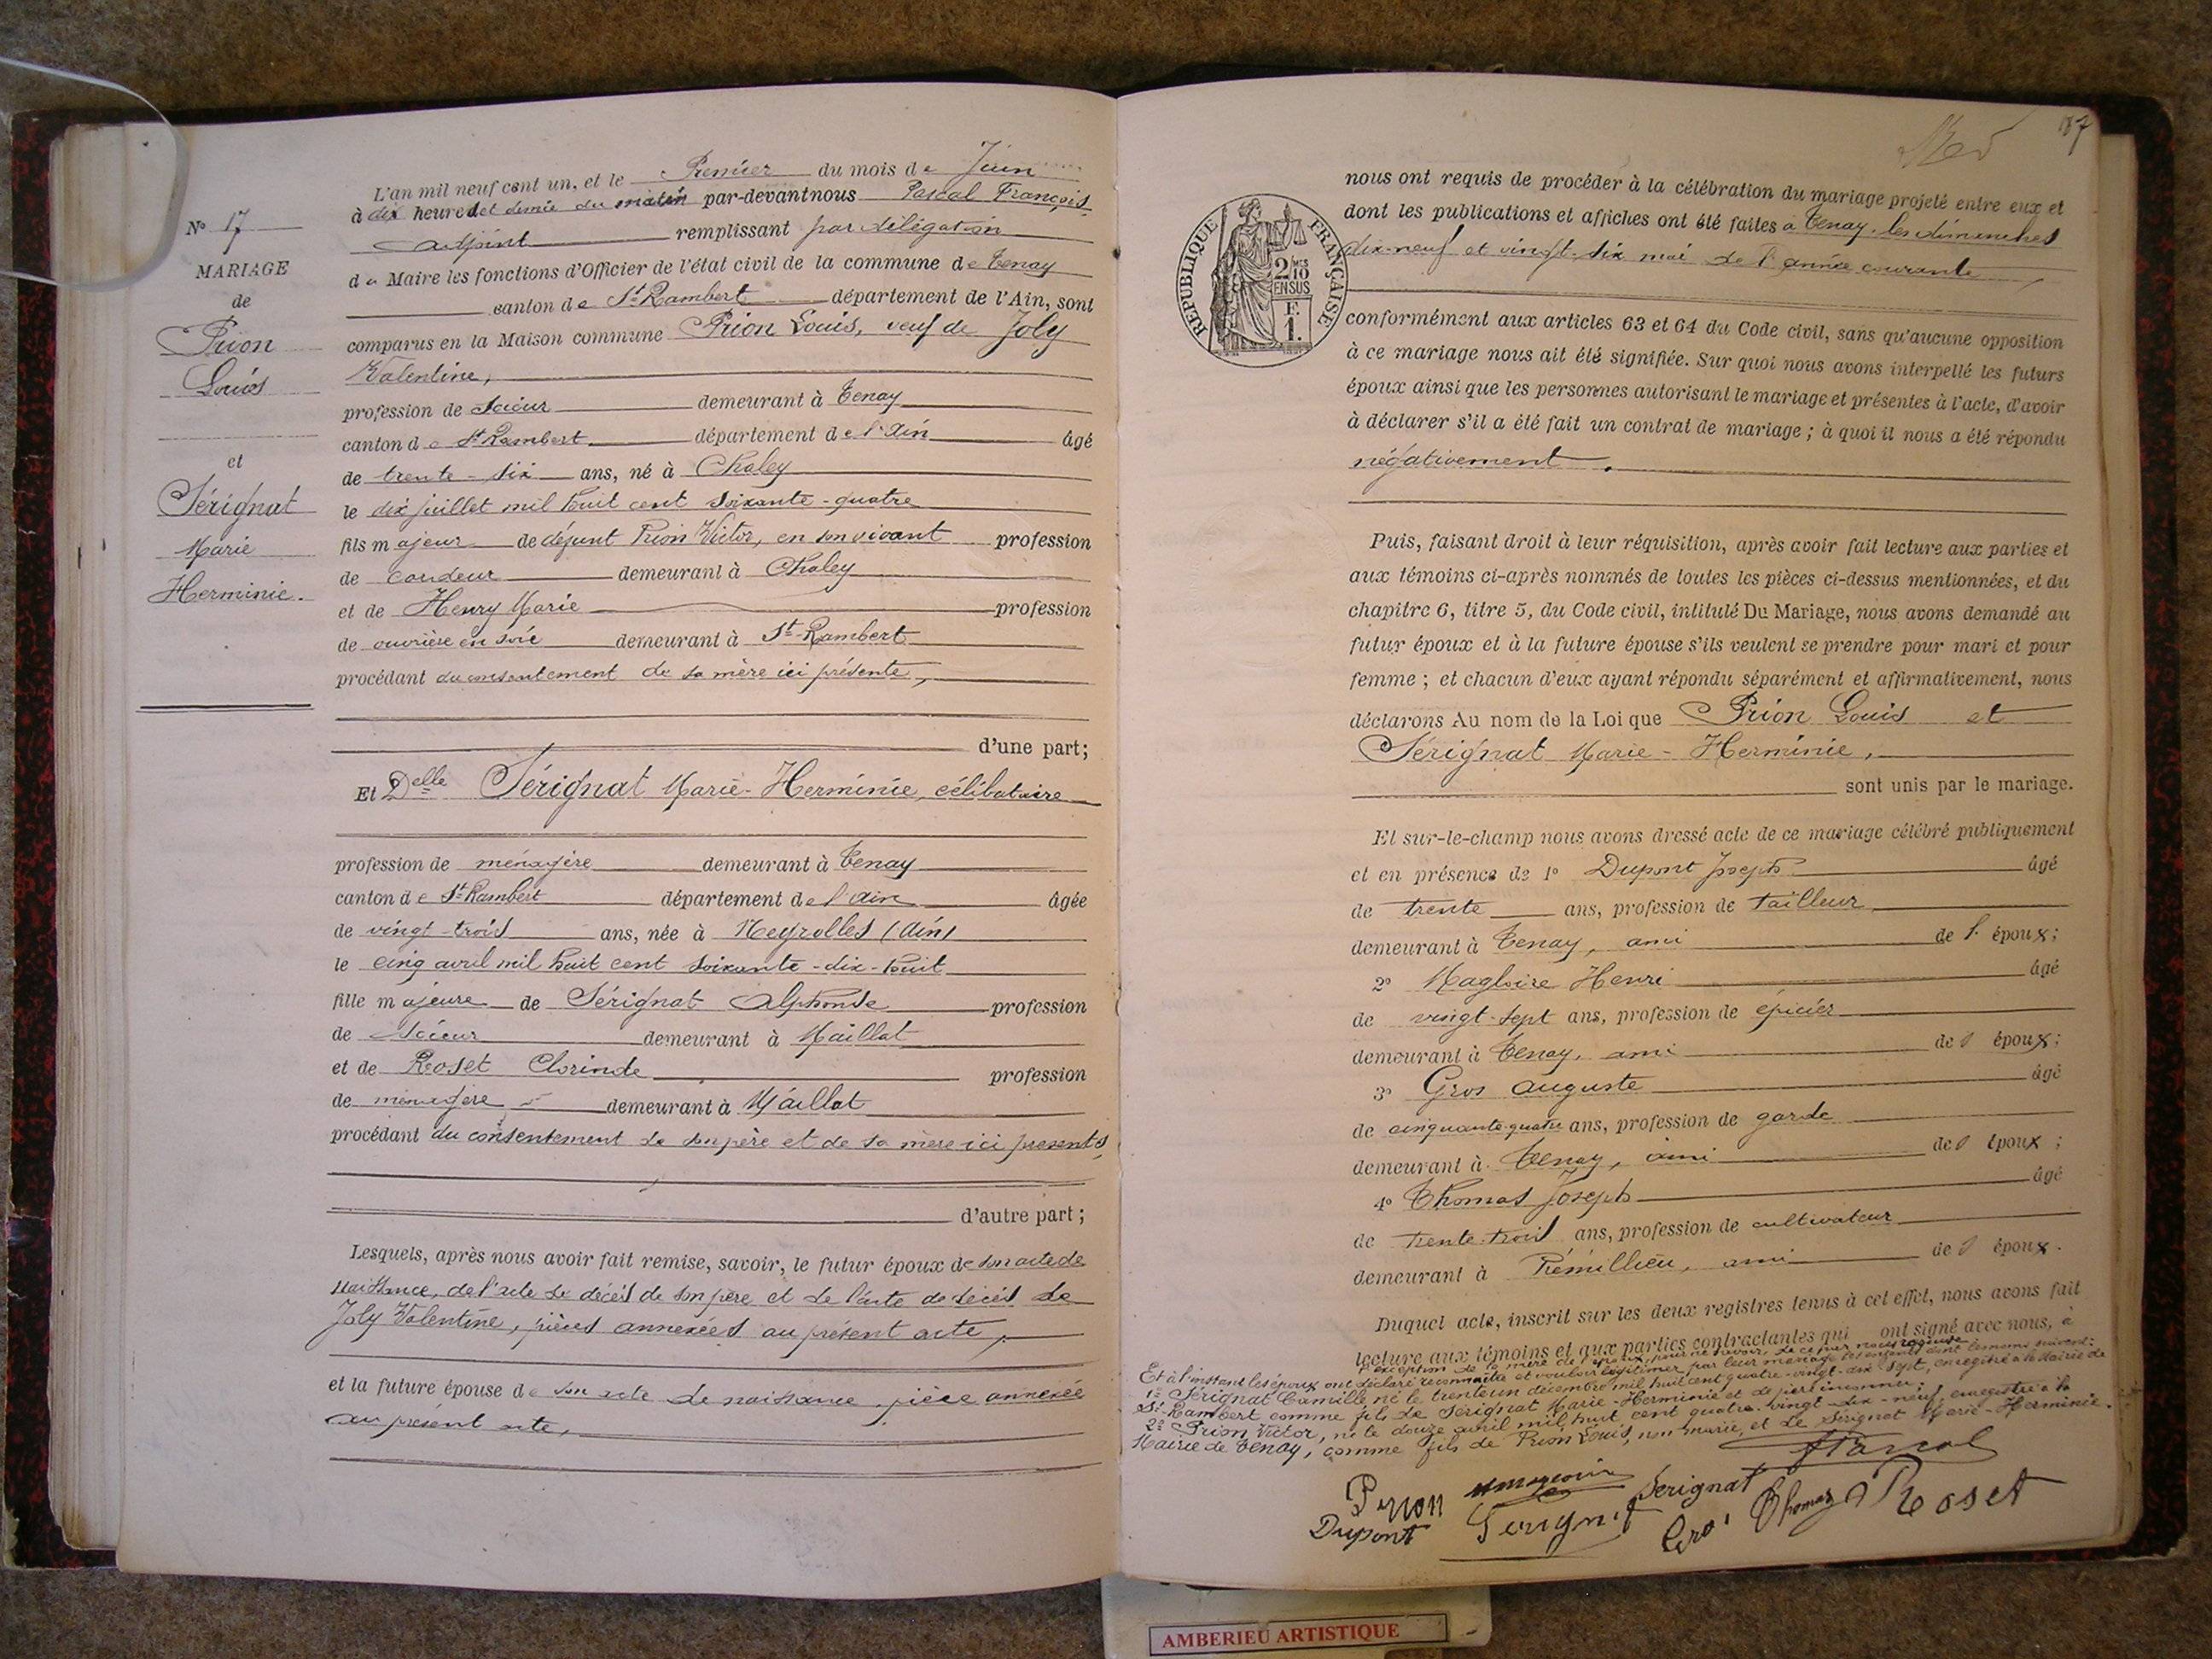 N° 17
MARIAGE
de
Prion
Louis
et
Sérignat
Marie
Herminie.
L'an mil neuf cent un, et le Premier du mois de Juin
à dix heures et demie du matin par-devant nous Pascal François,
adjoint remplissant par délégation
du Maire les fonctions d'Officier de l'état civil de la commune de Tenay
canton de St-Rambert département de l'Ain, sont
comparus en la Maison commune Prion Louis, veuf de Joly
Valentine,
profession de Scieur demeurant à Tenay
canton de St Rambert département de l'Ain âgé
de trente-six ans, né à Chaley
le dix juillet mil huit cent soixante-quatre
fils majeur de défunt Prion Victor, en son vivant profession
de demeurant à Chaley
et de Henry Marie profession
de ouvrière en soie demeurant à St-Rambert
procédant du consentement de sa mère ici présente,
d'une part;
Et Delle Sérignat Marie-Herminie, célibataire
profession de ménagère demeurant à Tenay
canton de St-Rambert département de l'Ain âgée
de vingt-trois ans, née à Neyrolles (Ain)
le cinq avril mil huit cent soixante-dix-huit
fille majeure de Sérignat Alphonse profession
de Scieur demeurant à Maillat
et de Roset Clorinde profession
de ménagère demeurant à Maillat
procédant du consentement de son père et de sa mère ici présents,
d'autre part;
Lesquels, après nous avoir fait remise, savoir, le futur époux de son acte de
naissance, de l'acte de décès de son père et de l'acte de décès de
Joly Valentine, pièces annexées au présent acte,
et la future épouse de son acte de naissance, pièce annexée
au présent acte,
87
REPUBLIQUE FRANÇAISE
2/10 MES
EN SUS
F.
1.
nous ont requis de procéder à la célébration du mariage projeté entre eux et
dont les publications et affiches ont été faites à Tenay, les dimanches
dix-neuf et vingt-six mai de l'année courante
conformément aux articles 63 et 64 du Code civil, sans qu'aucune opposition
à ce mariage nous ait été signifiée. Sur quoi nous avons interpellé les futurs
époux ainsi que les personnes autorisant le mariage et présentes à l'acte, d'avoir
à déclarer s'il a été fait un contrat de mariage; à quoi il nous a été répondu
négativement.
Puis, faisant droit à leur réquisition, après avoir fait lecture aux parties et
aux témoins ci-après nommés de toutes les pièces ci-dessus mentionnées, et du
chapitre 6, titre 5, du Code civil, intitulé Du Mariage, nous avons demandé au
futur époux et à la future épouse s'ils veulent se prendre pour mari et pour
femme; et chacun d'eux ayant répondu séparément et affirmativement, nous
déclarons Au nom de la Loi que Prion Louis et
Sérignat Marie-Herminie,
sont unis par le mariage.
Et sur-le-champ nous avons dressé acte de ce mariage célébré publiquement
et en présence de 1° Dupont Joseph âgé
de trente ans, profession de tailleur
demeurant à Tenay, ami de l'époux;
2° Magloire Henri âgé
de vingt-sept ans, profession de épicier
demeurant à Tenay, ami de l'époux;
3° Gros Auguste âgé
de cinquante-quatre ans, profession de garde
demeurant à Tenay, ami de l'époux;
4° Thomas Joseph âgé
de trente-trois ans, profession de cultivateur
demeurant à Prémillieu, ami de l'époux.
Duquel acte, inscrit sur les deux registres tenus à cet effet, nous avons fait
lecture aux témoins et aux parties contractantes qui ont signé avec nous, à
l'exception de la mère de l'époux, pour ne savoir, de ce par nous requise.
Et à l'instant les époux ont déclaré reconnaître et vouloir légitimer par leur mariage les enfants dont les noms suivent:
1° Sérignat Camille, né le trente un décembre mil huit cent quatre-vingt-dix-sept, enregistré à la Mairie de
St-Rambert comme fils de Sérignat Marie-Herminie et de père inconnu;
2° Prion Victor, né le douze avril mil huit cent quatre-vingt-dix-neuf, enregistré à la
Mairie de Tenay, comme fils de Prion Louis, non marié, et de Sérignat Marie-Herminie.
FPascal
Prion Serignat
Dupont Serignat Gros Thomas Roset
AMBERIEU ARTISTIQUE